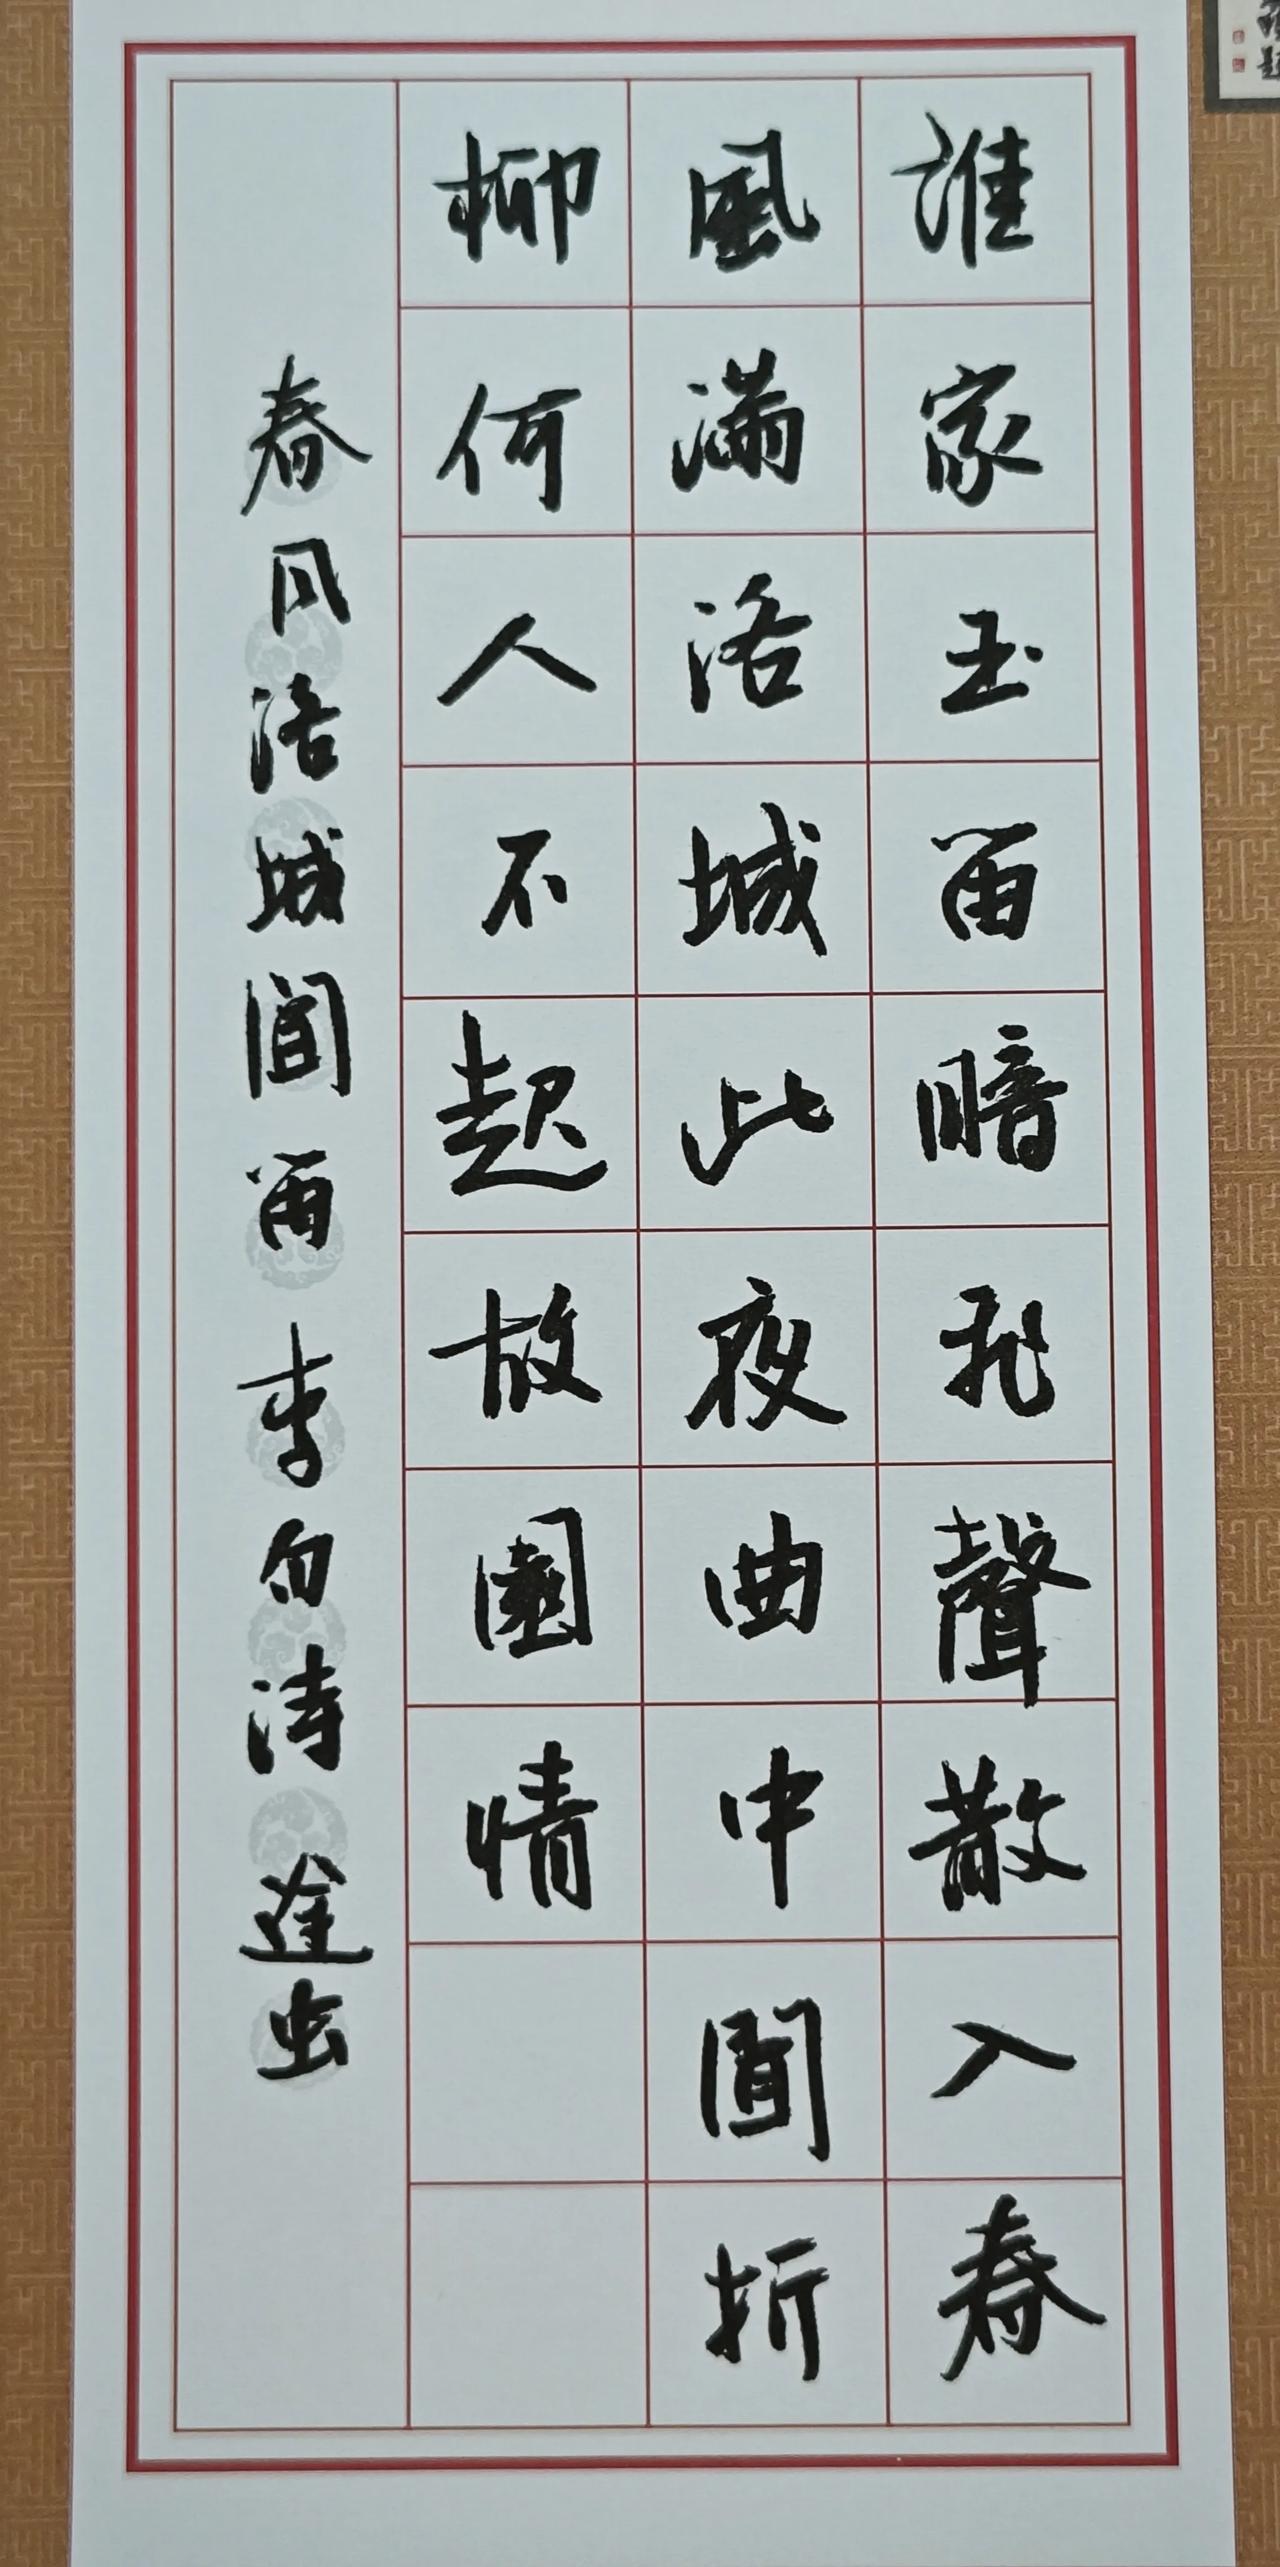 誰家玉笛暗飛聲散入春
風滿洛城此夜曲中聞折
柳何人不起故園情
春风洛城聞笛李白詩